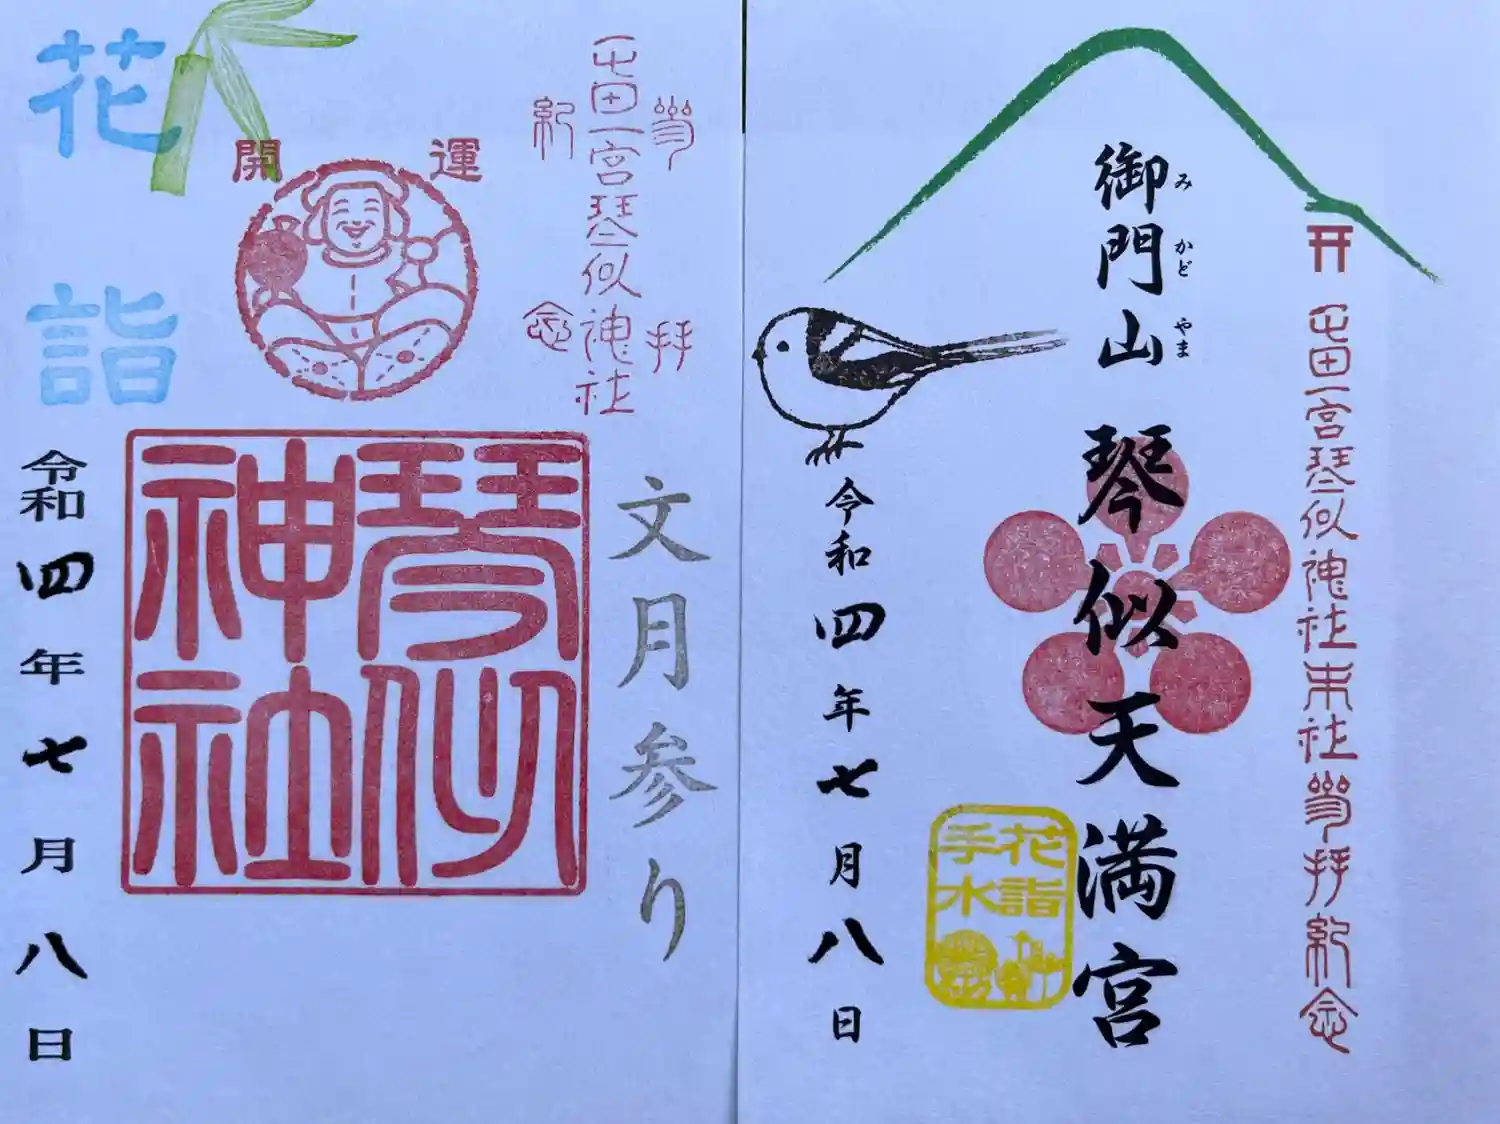 花詣
開運
参拝
屯田一宮琴似神社
紀念
琴似神社
文月参り
令和四年七月八日
屯田一宮琴似神社末社参拝紀念
御門山 琴似天満宮
みかどやま
花詣
手水
令和四年七月八日